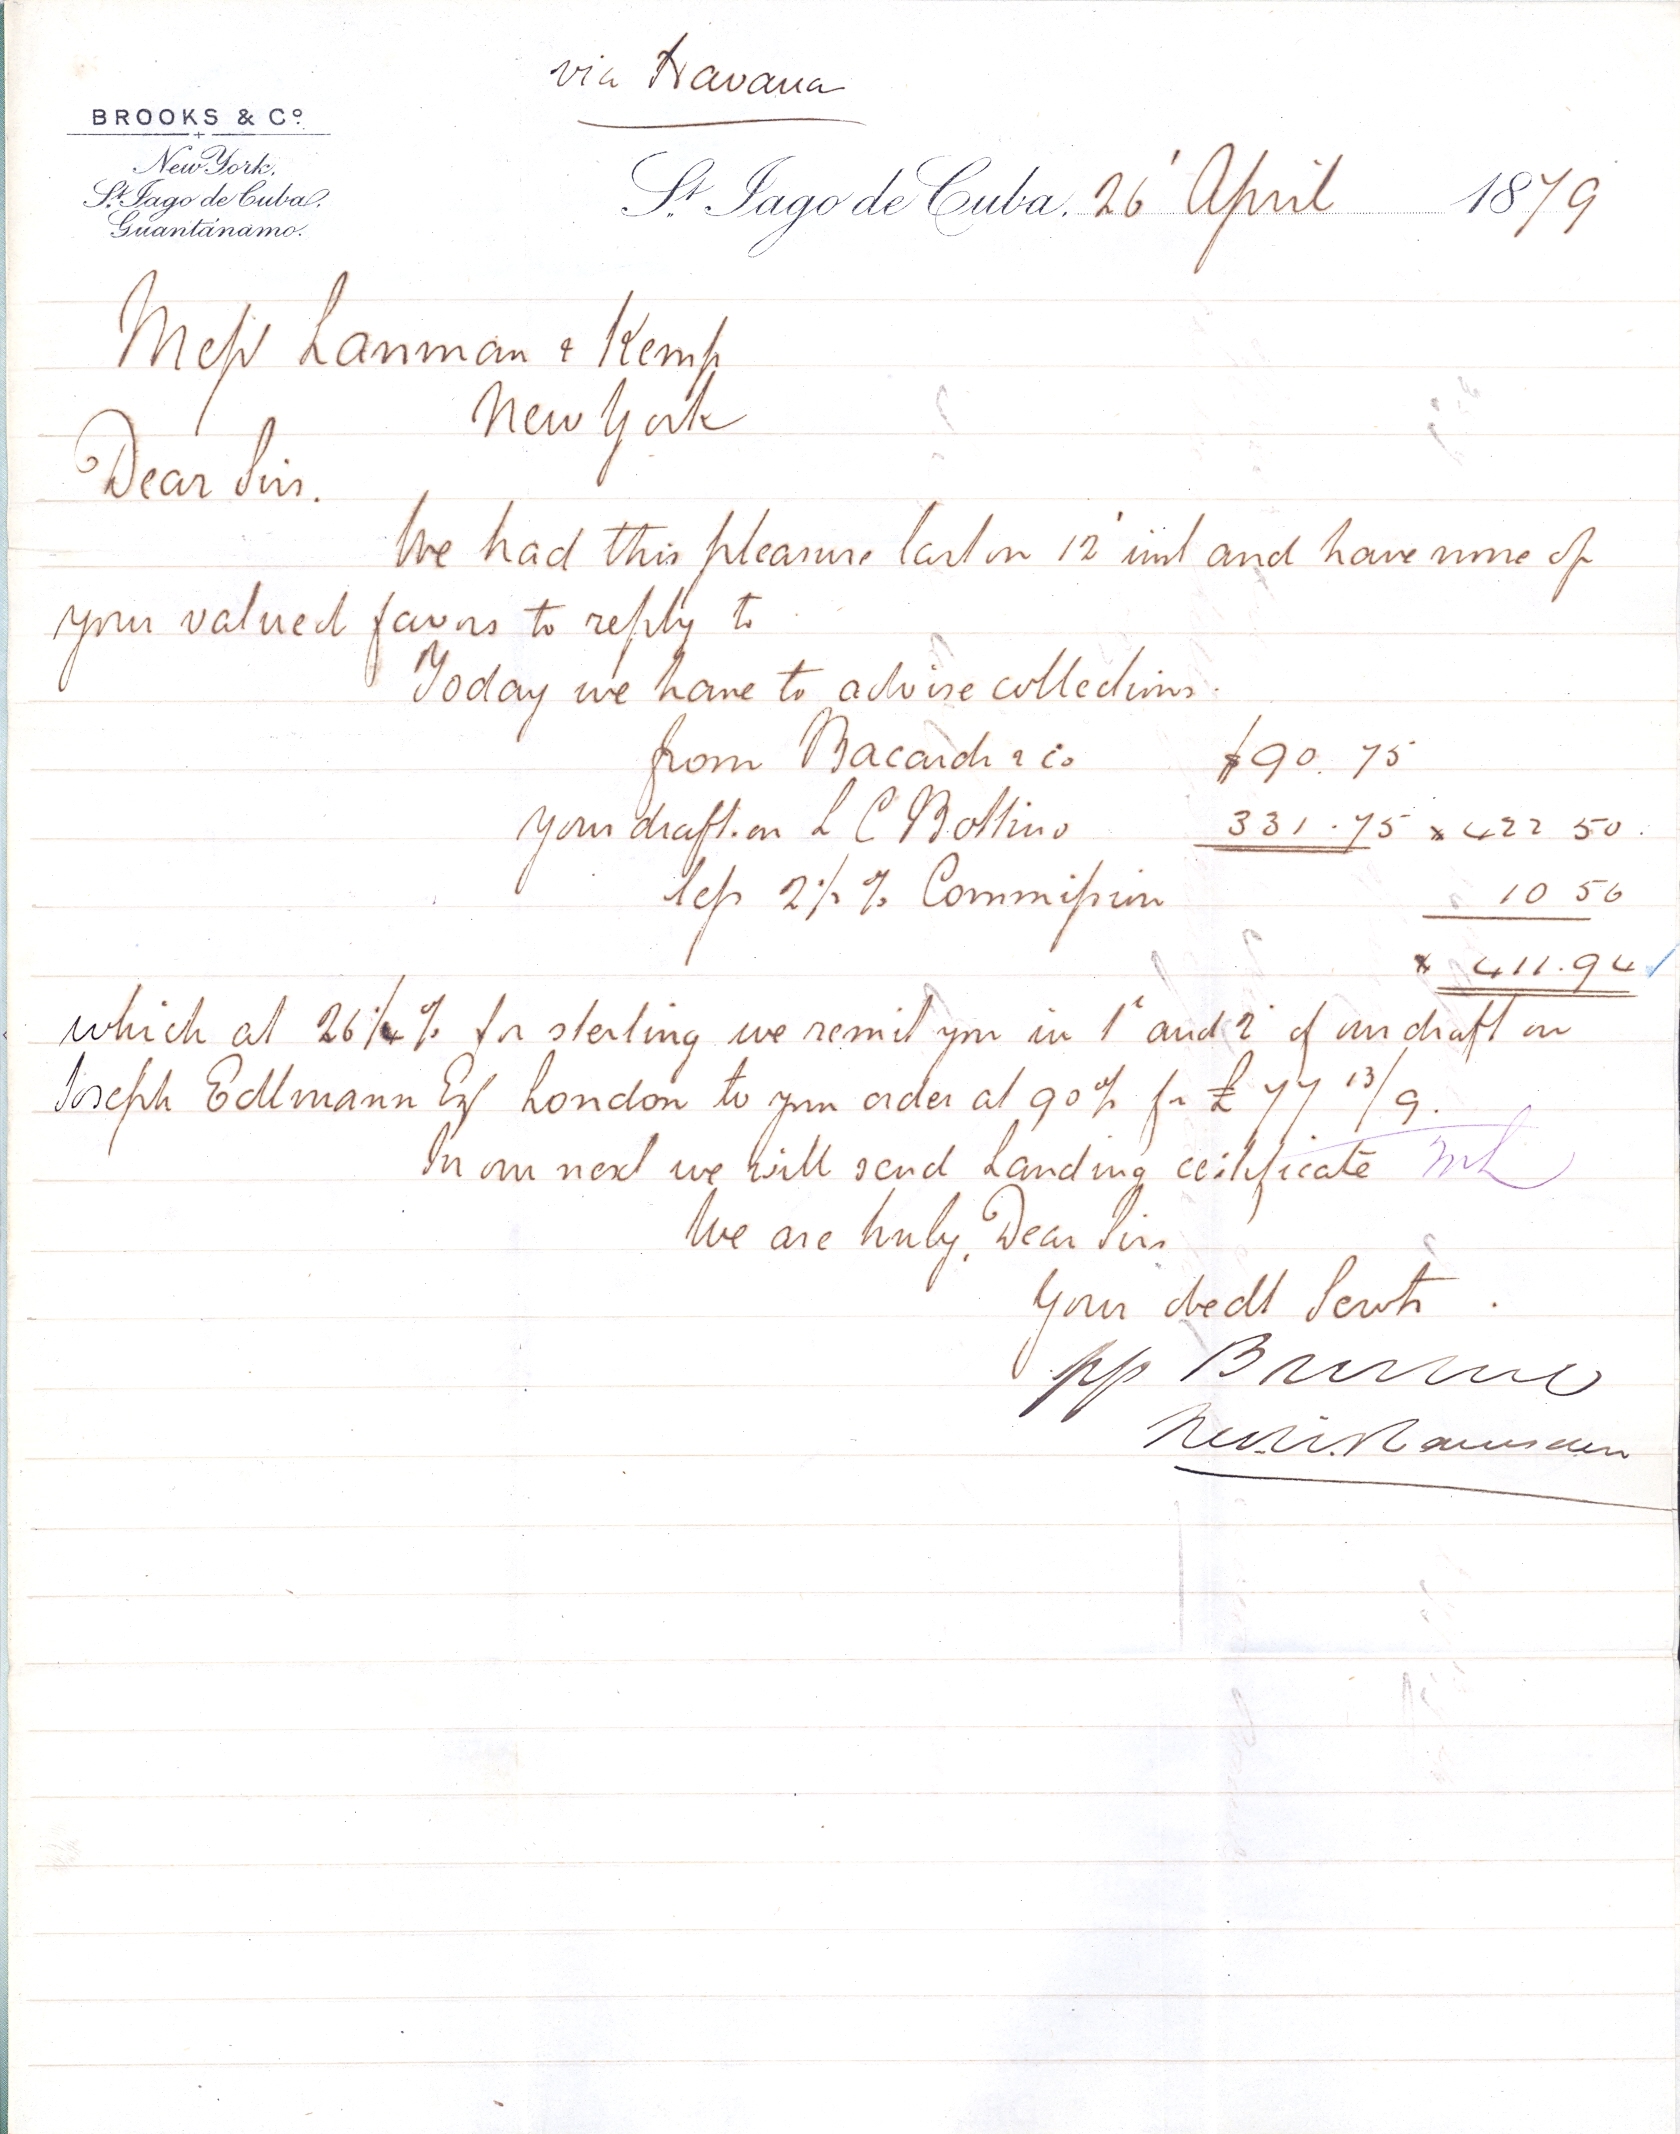 via Havana
BROOKS & Co.
New York.
St. Jago de Cuba.
Guantánamo.
St. Jago de Cuba. 26 April 1879
Mess Lanman & Kemp
New York
Dear Sirs.
We had this pleasure last on 12 inst and have none of
your valued favors to reply to
Today we have to advise collections.
from Bacardi & Co $90.75
your draft on L C Bottino 331.75 $422 50.
less 2½ % Commission 10 56
$ 411.94
which at 26¼% for sterling we remit you in 1st and 2d of our draft on
Joseph Edlmann Esq London to your order at 90 d/s for £77 13/9.
In our next we will send Landing certificate
We are truly, Dear Sirs
Your obedt Servts.
pp Brooks & Co
Ramsden